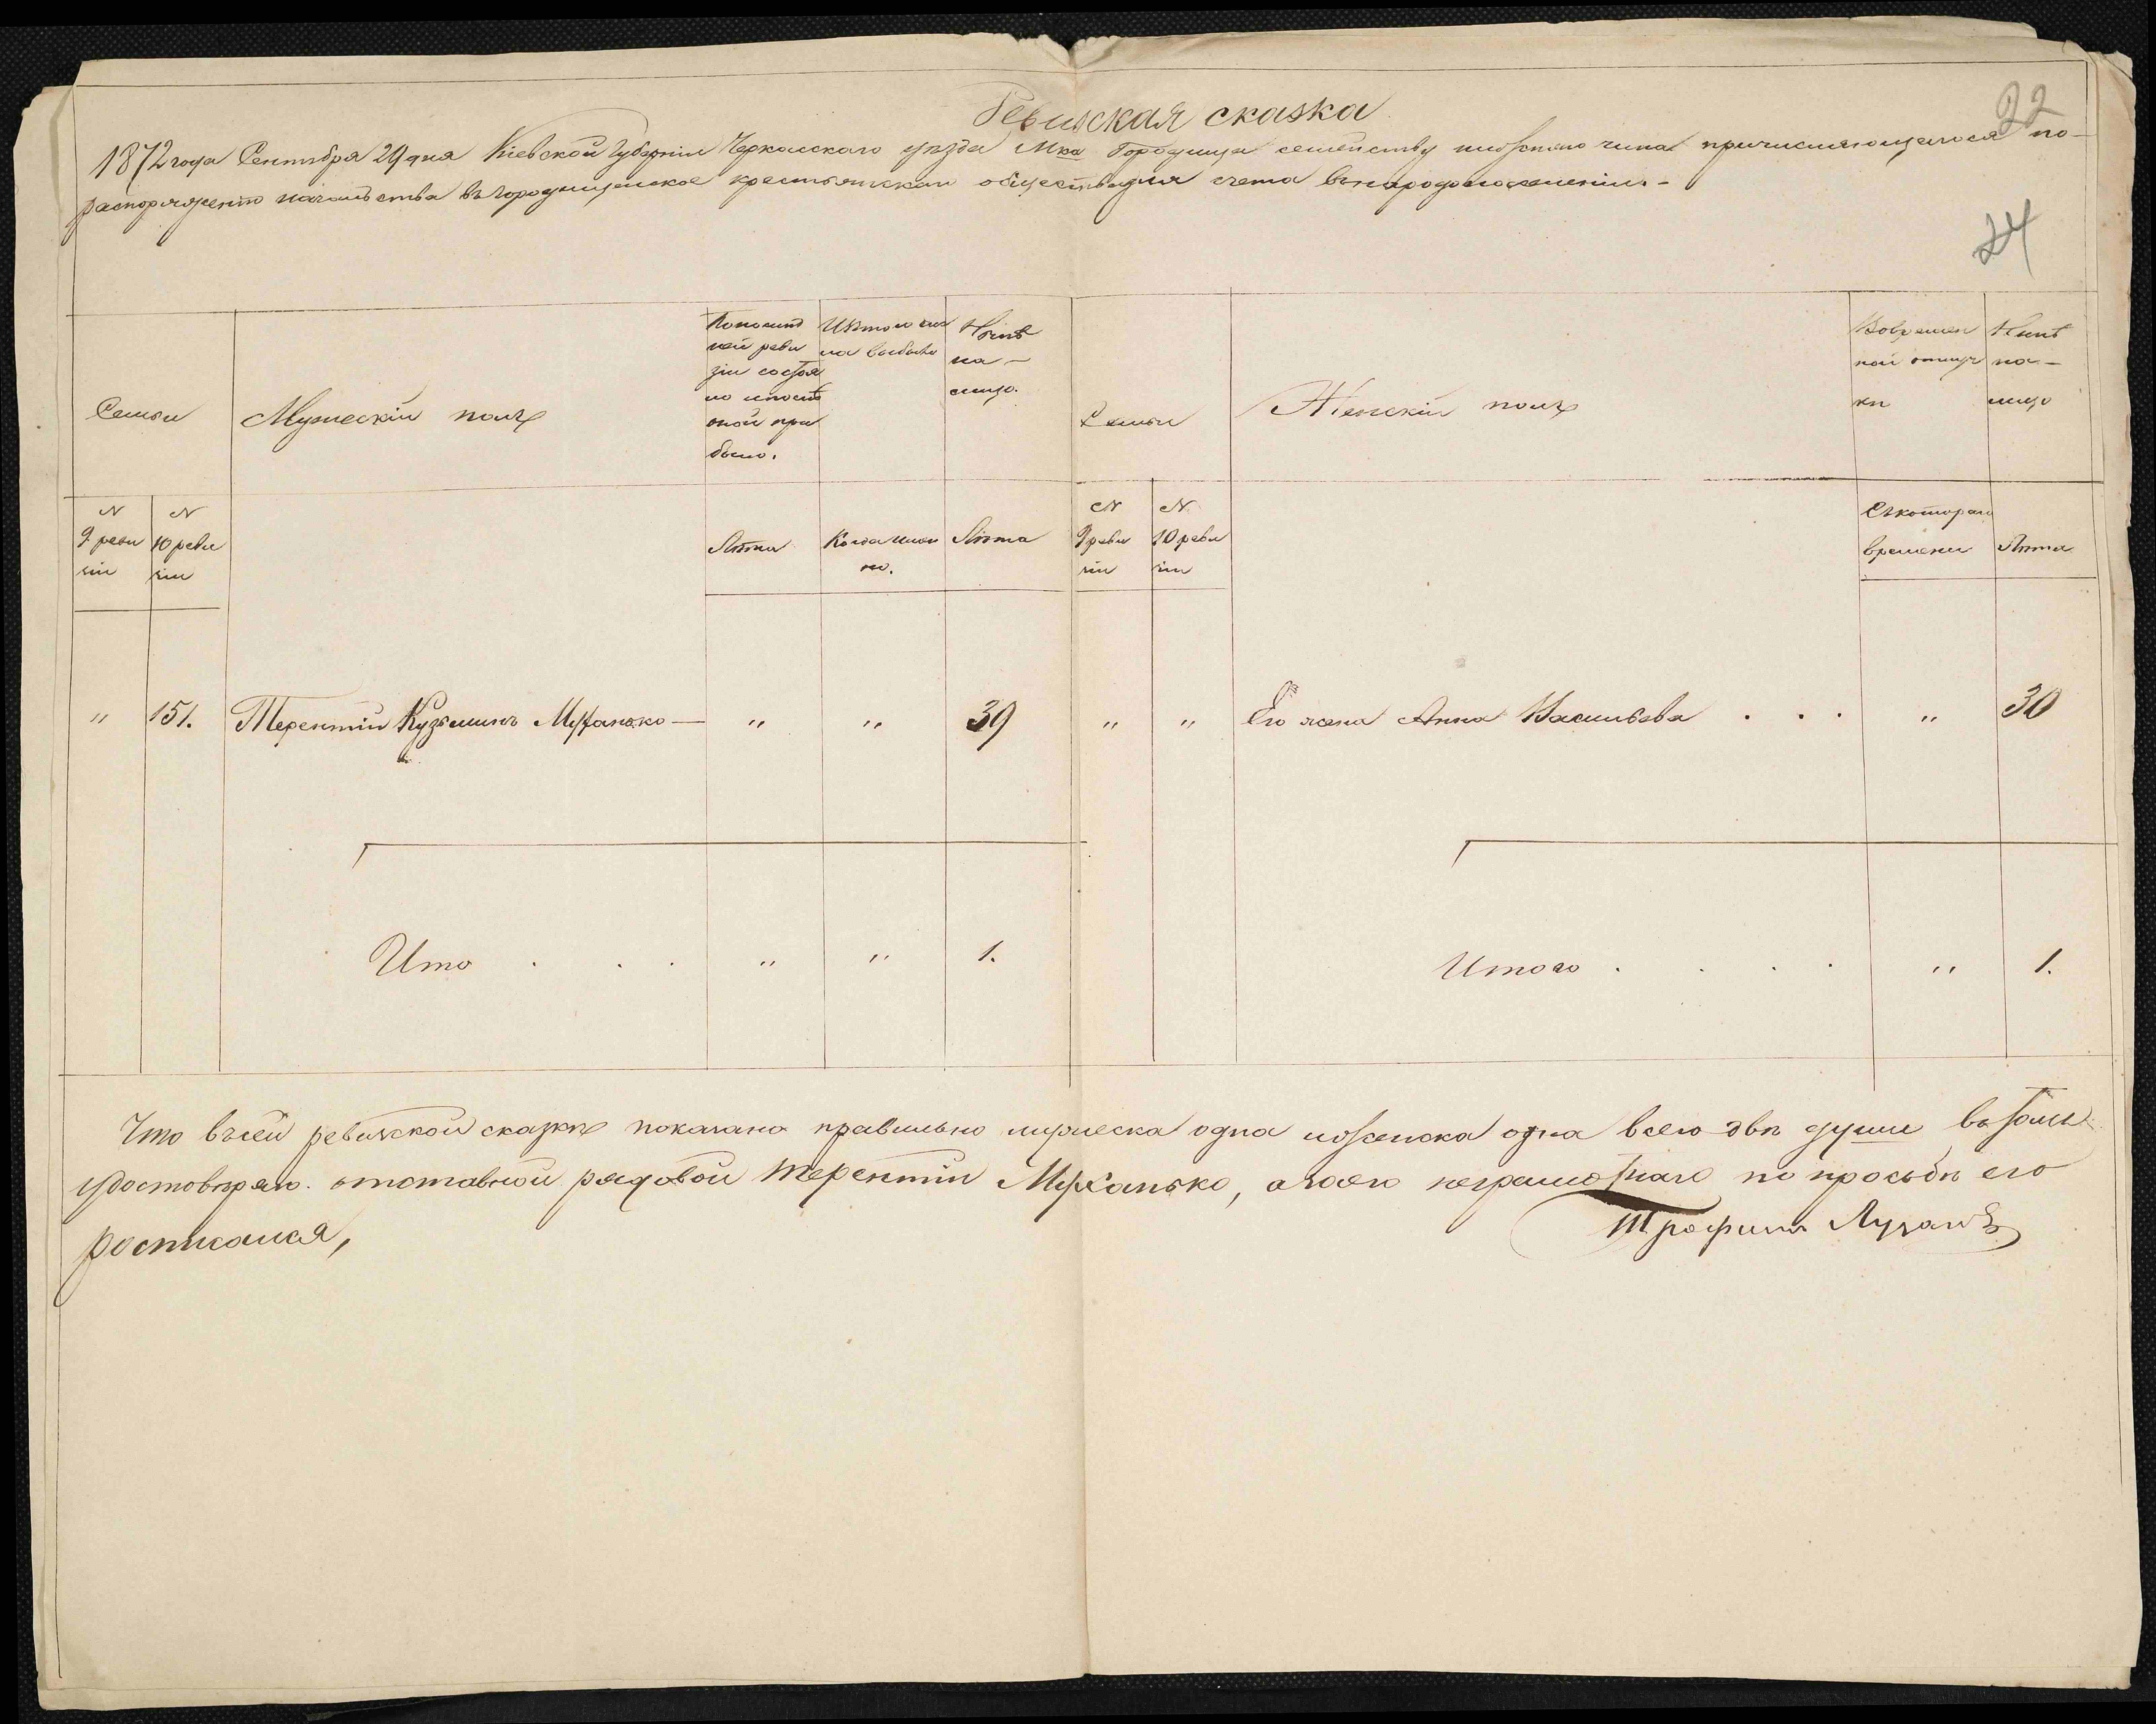 Ревизская сказка
22
1872 года Сентября 29 дня Кіевской Губерніи Черкасскаго уѣзда Мка Городища семейству нижняго чина причисляющагося по-
распоряженію начальства въ городищенское крестьянскаи общество для счета въ народонаселеніи.-
24
Семьи
Мужескій полъ
По послѣд
ней реви
зіи состоя
ло и послѣ
оной при
было.
Изтого чис
ла выбыло
Нынѣ
на-
лицо.
Семьи
Женскій полъ
Вовремен
ной отлуч
кѣ
Нынѣ
на-
лицо
N
9 реви
зіи
N
10 реви
зіи
Лѣта
Когда имен
но.
Лѣта
N
9 реви
зіи
N
10 реви
зіи
Съкотораго
времени
Лѣта
" 151. Терентій Кузьминъ Муханько — " " 39 " " Его жена Анна Васильева . . . " 30
Ито . . . " " 1. Итого . . . . " 1.
Что въсей ревизской сказкѣ показано правильно мужеска одна иженска одна всего двѣ души въ томъ
удостовѣряю. отставной рядовой Терентій Муханько, а заего неграмотнаго по просьбѣ его
росписался,
Трофимъ